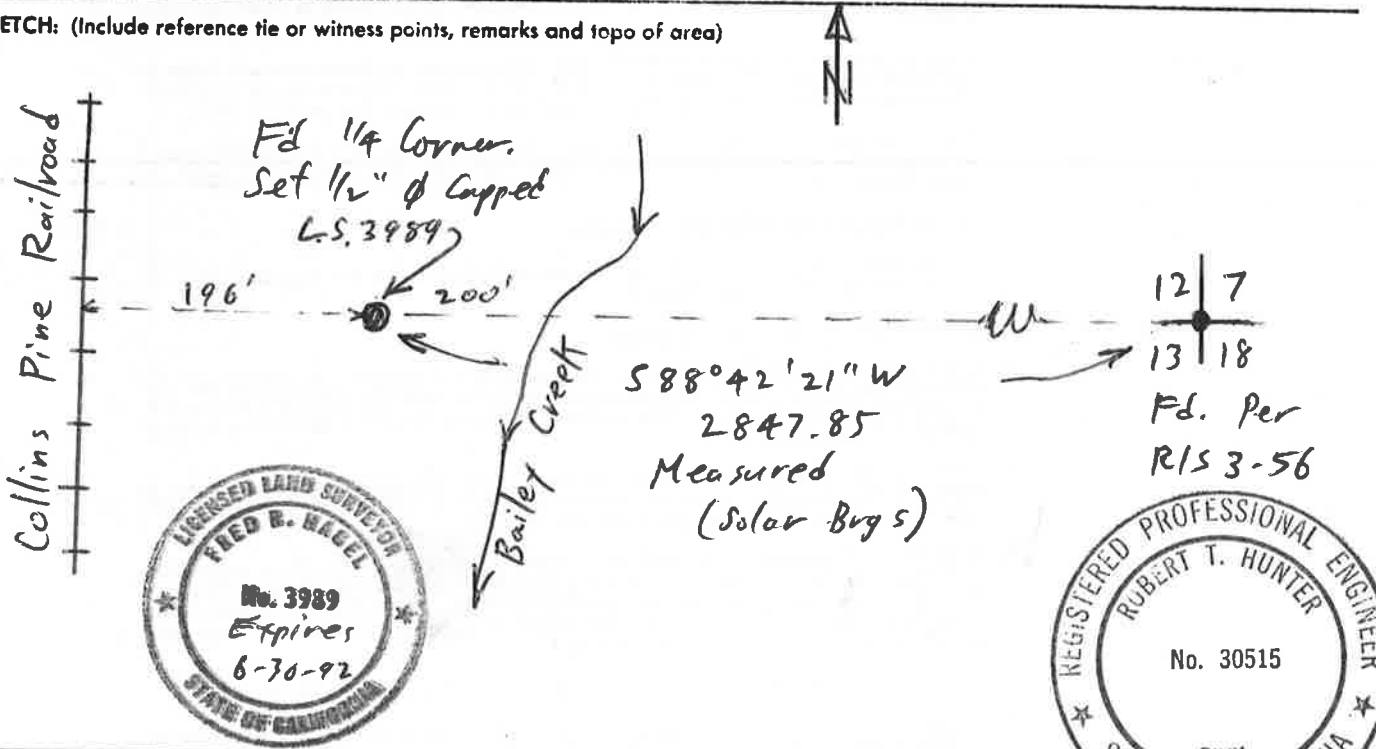 ETCH: (Include reference tie or witness points, remarks and topo of area)
N
Collins Pine Railroad
Fd 1/4 Corner.
Set 1/2" ø Capped
L.S. 3989
196'
200'
Bailey Creek
S 88°42'21" W
2847.85
Measured
(Solar Brgs)
12 7
13 18
Fd. Per
R/S 3-56
LICENSED LAND SURVEYOR
FRED R. HAGEL
No. 3989
Expires
6-30-92
STATE OF CALIFORNIA
REGISTERED PROFESSIONAL ENGINEER
ROBERT T. HUNTER
No. 30515